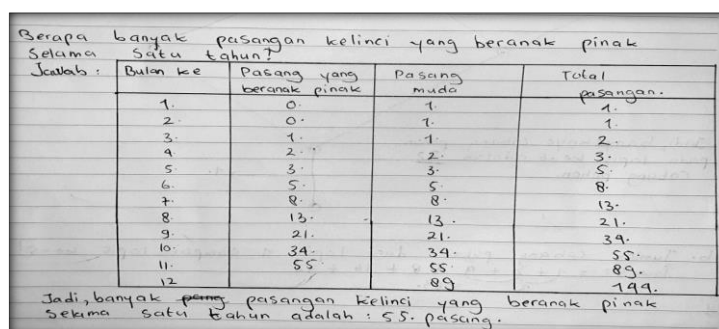 Berapa banyak pasangan kelinci yang beranak pinak
Selama satu tahun?
Jawab : Bulan ke Pasang yang beranak pinak Pasang muda Total pasangan.
1. 0. 1. 1.
2. 0. 1. 1.
3. 1. 1. 2.
4. 2. 2. 3.
5. 3. 3. 5.
6. 5. 5. 8.
7. 8. 8. 13.
8. 13. 13. 21.
9. 21. 21. 34.
10. 34. 34. 55.
11. 55 55. 89.
12 89 144.
Jadi, banyak pasangan kelinci yang beranak pinak
Selama satu tahun adalah : 55. pasang.